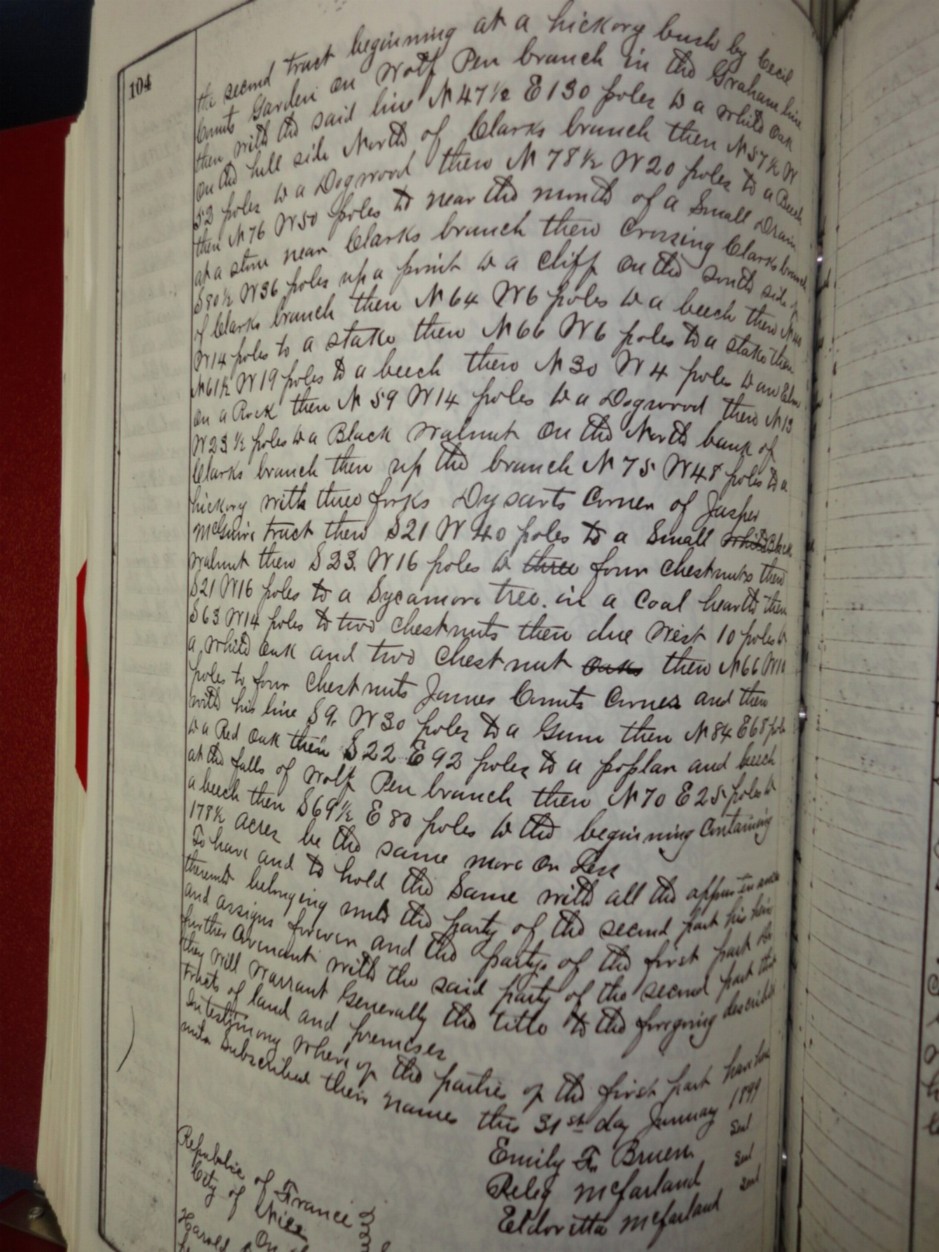 104
the second tract beginning at a hickory bush by Cecil
Counts Garden on Wolf Pen branch in the Graham line
then with the said line N 47½ E 130 poles to a white oak
on the hill side North of Clarks branch then N 57½ W
52 poles to a Dogwood then N 78½ W 20 poles to a Beech
then N 76 W 50 poles to near the mouth of a Small Drain
at a stone near Clarks branch then Crossing Clarks branch
S 80½ W 36 poles up a point to a cliff on the south side
of Clarks branch then N 64 W 6 poles to a beech then
W 14 poles to a stake then N 66 W 6 poles to a stake then
N 61½ W 19 poles to a beech then N 30 W 4 poles to an Elm
on a Rock then N 59 W 14 poles to a Dogwood then N 13
W 23½ poles to a Black Walnut on the North bank of
Clarks branch then up the branch N 75 W 48 poles to a
hickory with three forks Dysarts Corner of Jasper
McGuire tract then S 21 W 40 poles to a Small White Black
walnut then S 23 W 16 poles to three four chestnuts then
S 21 W 16 poles to a Sycamore tree in a Coal hearth then
S 63 W 14 poles to two chestnuts then due West 10 poles to
a White Oak and two chestnut Oaks then N 66 W 11
poles to four Chestnuts James Counts Corner and then
with his line S 9 W 30 poles to a Gum then N 84 E 68 poles
to a Red oak then S 22 E 92 poles to a poplar and beech
at the falls of Wolf Pen branch then N 70 E 25 poles to
a beech then S 69½ E 80 poles to the beginning Containing
178½ acres be the same more or Less
To have and to hold the Same with all the appurtenances
thereunto belonging unto the party of the second part his heirs
and assigns forever and the partys of the first part do
further Covenant with the said party of the second part that
they will warrant Generally the title to the forgoing described
tracts of land and premises
In testimony where of the parties of the first part have here
unto Subscribed their names this 31st day January 1899
Emily F. Bruen Seal
Pelig McFarland Seal
Eldoritta McFarland Seal
Republic of France
City of Nice
Harold